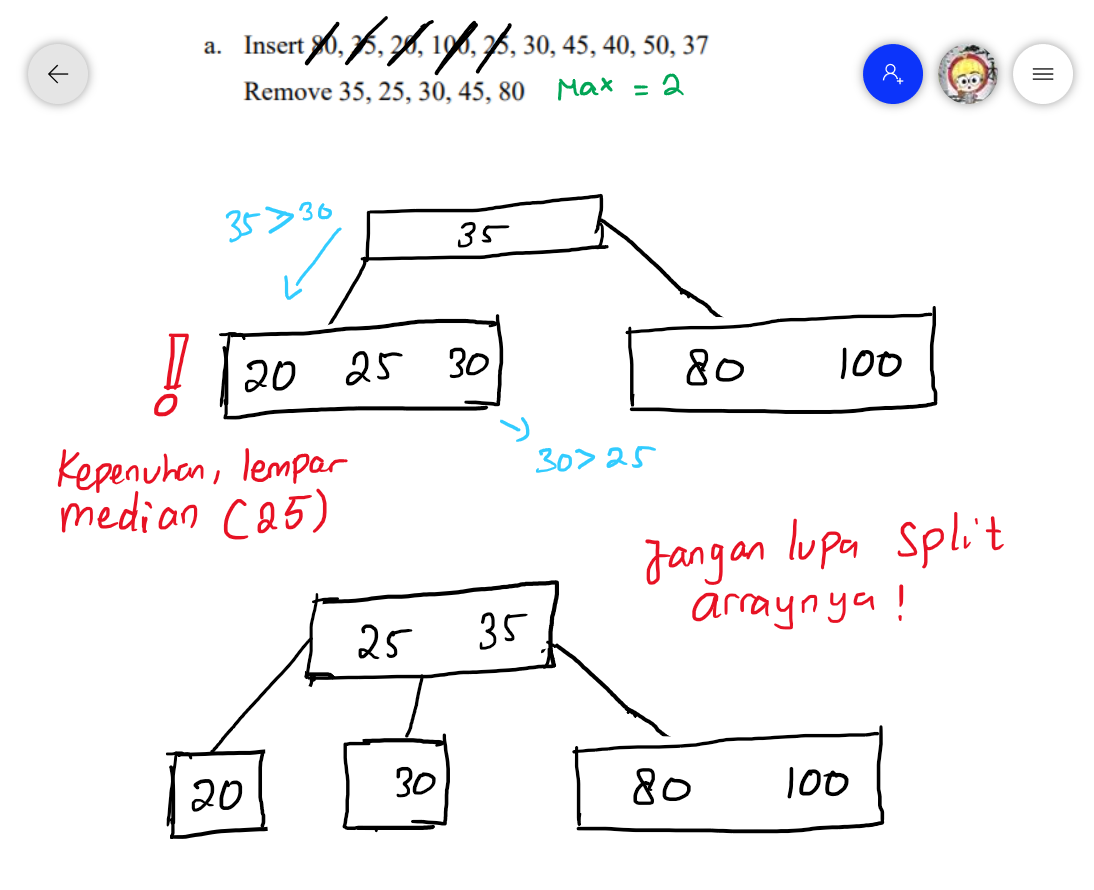 a. Insert 80, 35, 20, 100, 25, 30, 45, 40, 50, 37
Remove 35, 25, 30, 45, 80 Max = 2
35 > 30
35
20 25 30
80 100
30 > 25
Kepenuhan, lempar
median (25)
Jangan lupa split
arraynya !
25 35
20
30
80 100